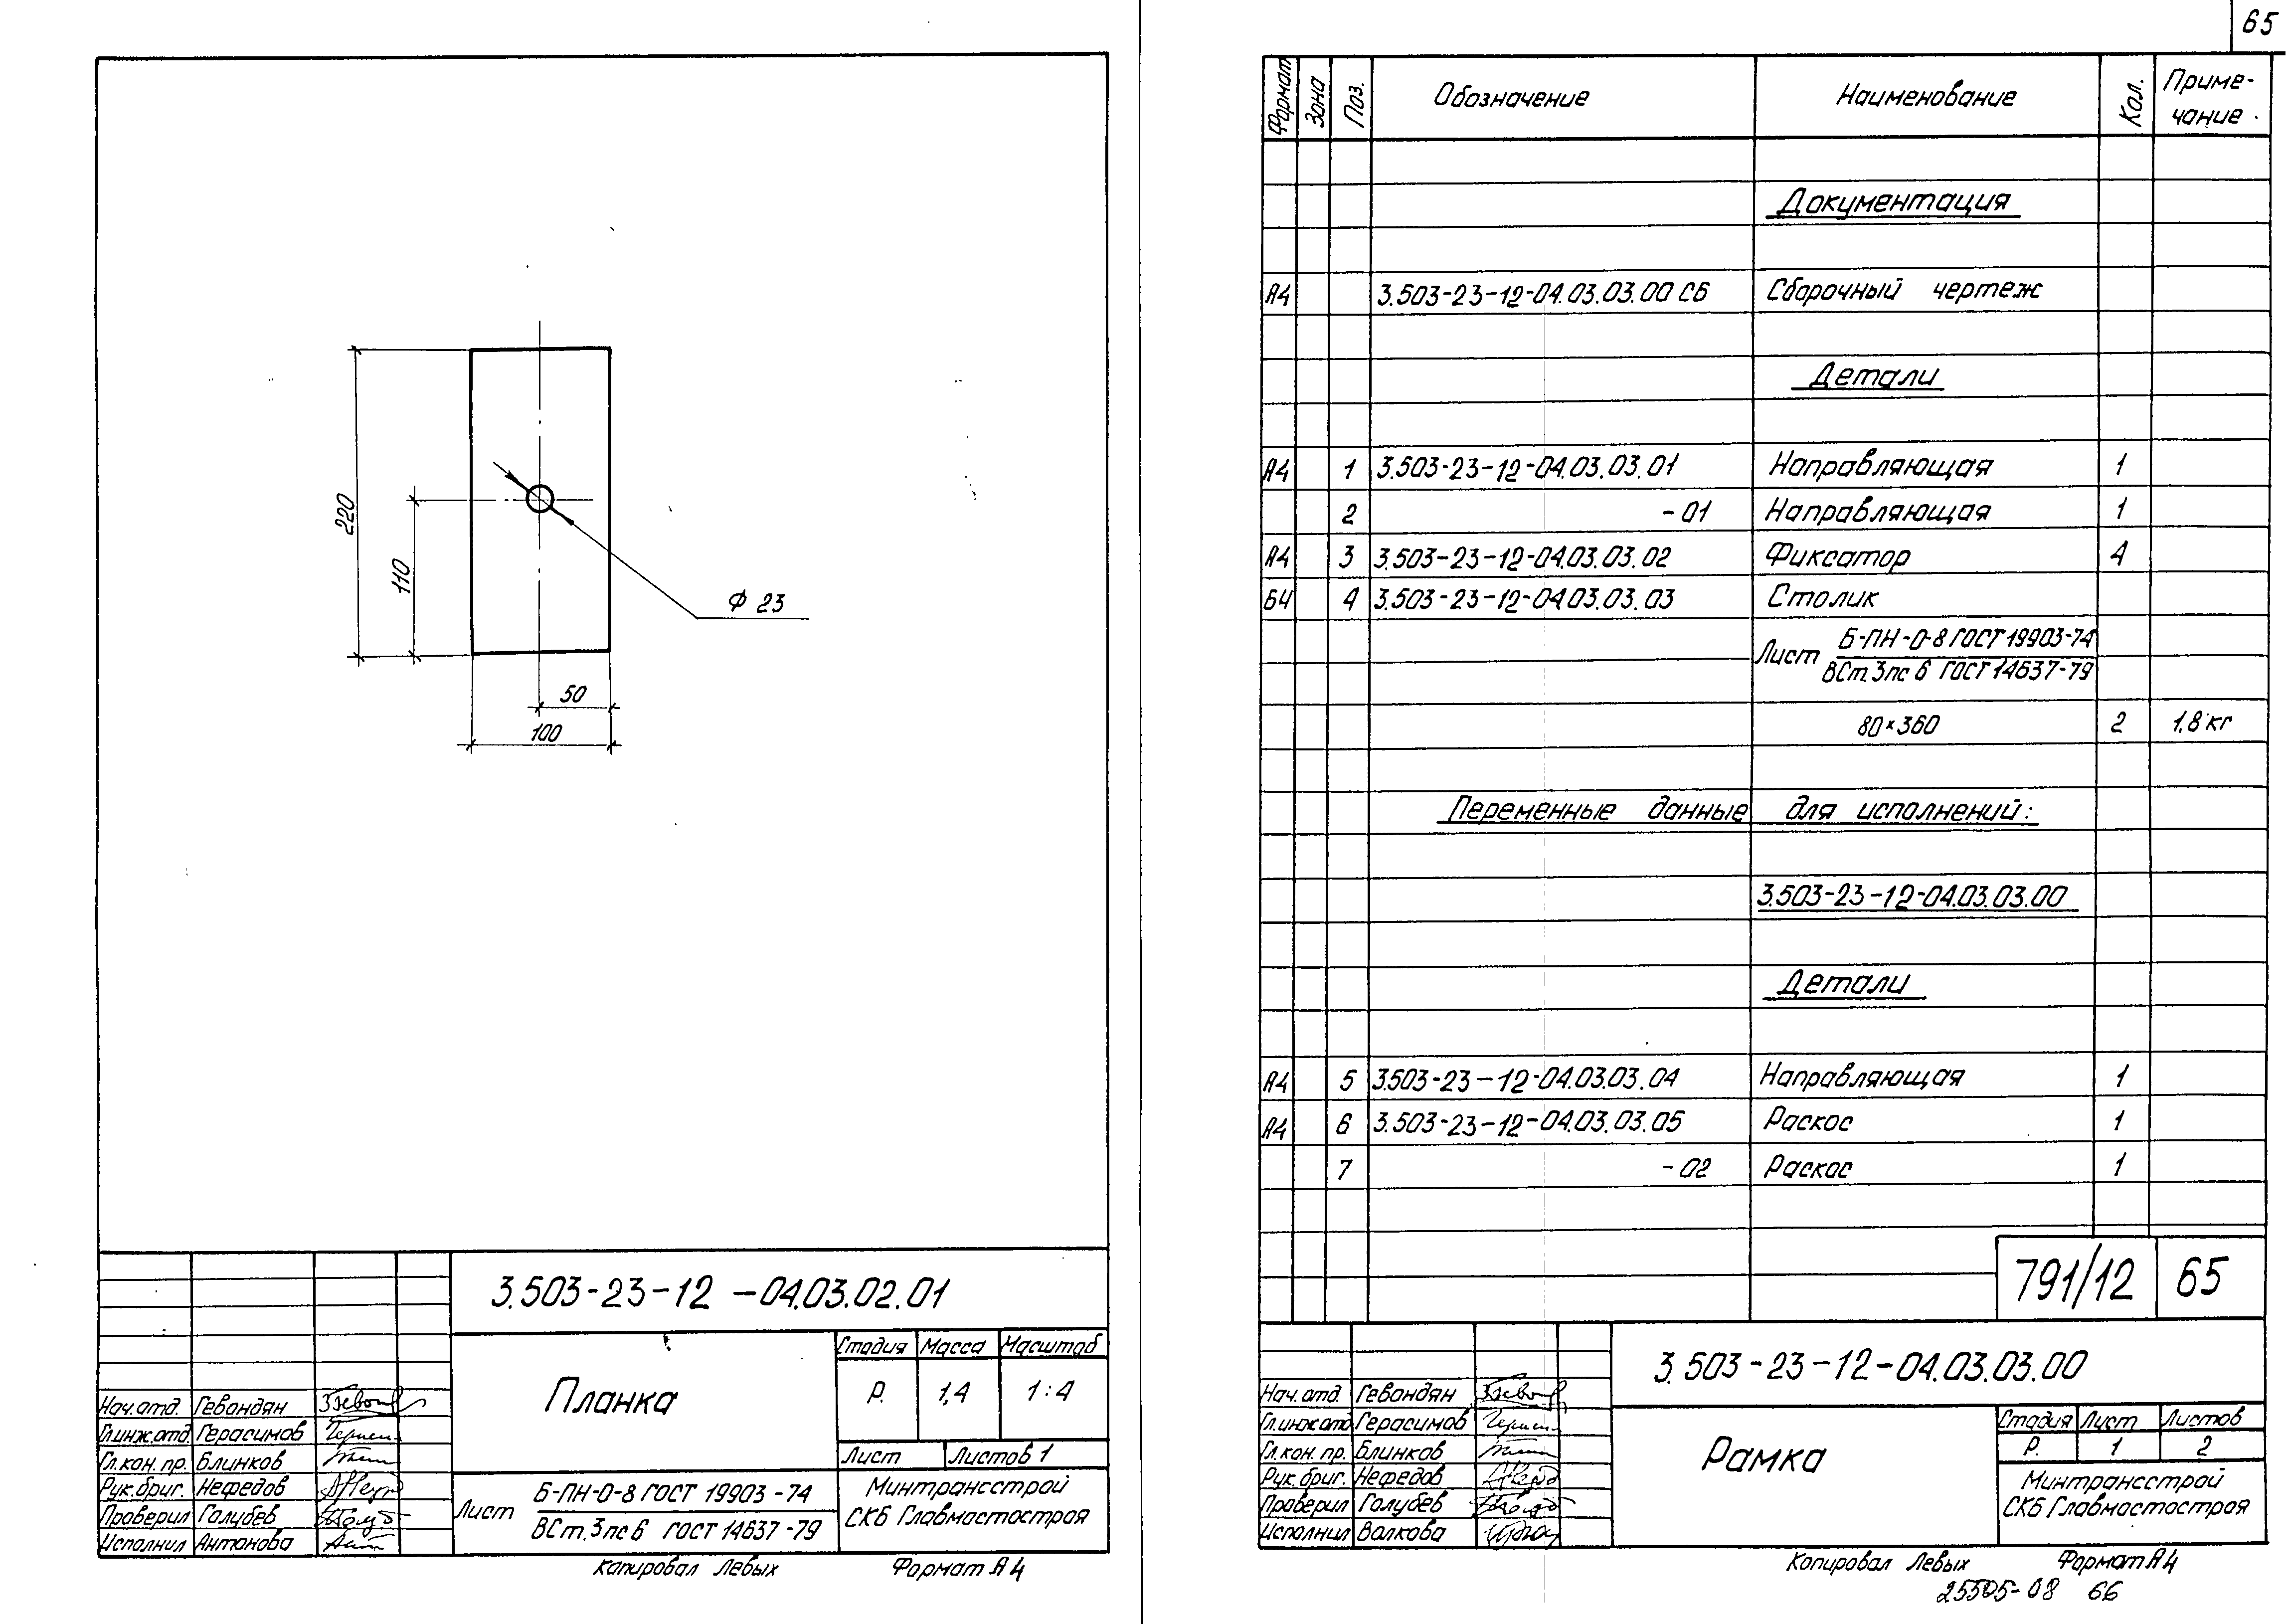 65
220
110
Ф 23
50
100
3.503-23-12-04.03.02.01
Планка
Стадия Масса Масштаб
Р. 1,4 1:4
Лист Листов 1
Нач.отд. Гевондян
Гл.инж.отд. Герасимов
Гл.кон.пр. Блинков
Рук.бриг. Нефедов
Проверил Голубев
Исполнил Антонова
Лист Б-ПН-0-8 ГОСТ 19903-74
ВСт.3пс6 ГОСТ 14637-79
Минтрансстрой
СКБ Главмостостроя
Копировал Левых Формат А4
Формат Зона Поз. Обозначение Наименование Кол. Приме-
чание
Документация
А4 3.503-23-12-04.03.03.00 СБ Сборочный чертеж
Детали
А4 1 3.503-23-12-04.03.03.01 Направляющая 1
2 -01 Направляющая 1
А4 3 3.503-23-12-04.03.03.02 Фиксатор 4
БЧ 4 3.503-23-12-04.03.03.03 Столик
Лист Б-ПН-0-8 ГОСТ 19903-74
ВСт.3пс6 ГОСТ 14637-79
80×360 2 1,8 кг
Переменные данные для исполнений:
3.503-23-12-04.03.03.00
Детали
А4 5 3.503-23-12-04.03.03.04 Направляющая 1
А4 6 3.503-23-12-04.03.03.05 Раскос 1
7 -02 Раскос 1
791/12 65
3.503-23-12-04.03.03.00
Рамка
Стадия Лист Листов
Р. 1 2
Нач.отд. Гевондян
Гл.инж.отд Герасимов
Гл.кон.пр. Блинков
Рук.бриг. Нефедов
Проверил Голубев
Исполнил Волкова
Минтрансстрой
СКБ Главмостостроя
Копировал Левых Формат А4
25505-08 66